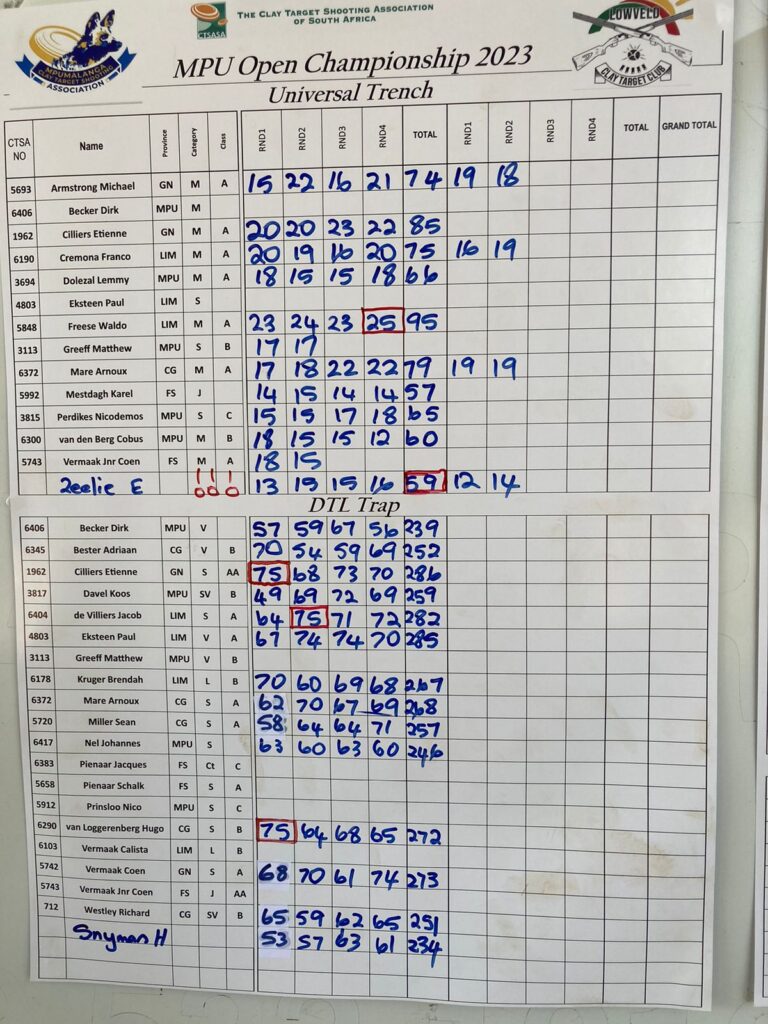 THE CLAY TARGET SHOOTING ASSOCIATION
OF SOUTH AFRICA
CTSASA
MPUMALANGA
CLAY TARGET SHOOTING
ASSOCIATION
LOWVELD
CLAY TARGET CLUB
MPU Open Championship 2023
Universal Trench
CTSA NO Name Province Category Class RND1 RND2 RND3 RND4 TOTAL RND1 RND2 RND3 RND4 TOTAL GRAND TOTAL
5693 Armstrong Michael GN M A 15 22 16 21 74 19 18
6406 Becker Dirk MPU M
1962 Cilliers Etienne GN M A 20 20 23 22 85
6190 Cremona Franco LIM M A 20 19 16 20 75 16 19
3694 Dolezal Lemmy MPU M A 18 15 15 18 66
4803 Eksteen Paul LIM S
5848 Freese Waldo LIM M A 23 24 23 25 95
3113 Greeff Matthew MPU S B 17 17
6372 Mare Arnoux CG M A 17 18 22 22 79 19 19
5992 Mestdagh Karel FS J 14 15 14 14 57
3815 Perdikes Nicodemos MPU S C 15 15 17 18 65
6300 van den Berg Cobus MPU M B 18 15 15 12 60
5743 Vermaak Jnr Coen FS M A 18 15
Zeelie E ! ! ! 13 15 15 16 59 12 14
DTL Trap
6406 Becker Dirk MPU V 57 59 67 56 239
6345 Bester Adriaan CG V B 70 54 59 69 252
1962 Cilliers Etienne GN S AA 75 68 73 70 286
3817 Davel Koos MPU SV B 49 69 72 69 259
6404 de Villiers Jacob LIM S A 64 75 71 72 282
4803 Eksteen Paul LIM V A 67 74 74 70 285
3113 Greeff Matthew MPU V B
6178 Kruger Brendah LIM L B 70 60 69 68 267
6372 Mare Arnoux CG S A 62 70 67 69 268
5720 Miller Sean CG S A 58 64 64 71 257
6417 Nel Johannes MPU S 63 60 63 60 246
6383 Pienaar Jacques FS Ct C
5658 Pienaar Schalk FS S A
5912 Prinsloo Nico MPU S C
6290 van Loggerenberg Hugo CG S B 75 64 68 65 272
6103 Vermaak Calista LIM L B
5742 Vermaak Coen GN S A 68 70 61 74 273
5743 Vermaak Jnr Coen FS J AA
712 Westley Richard CG SV B 65 59 62 65 251
Snyman H 53 57 63 61 234